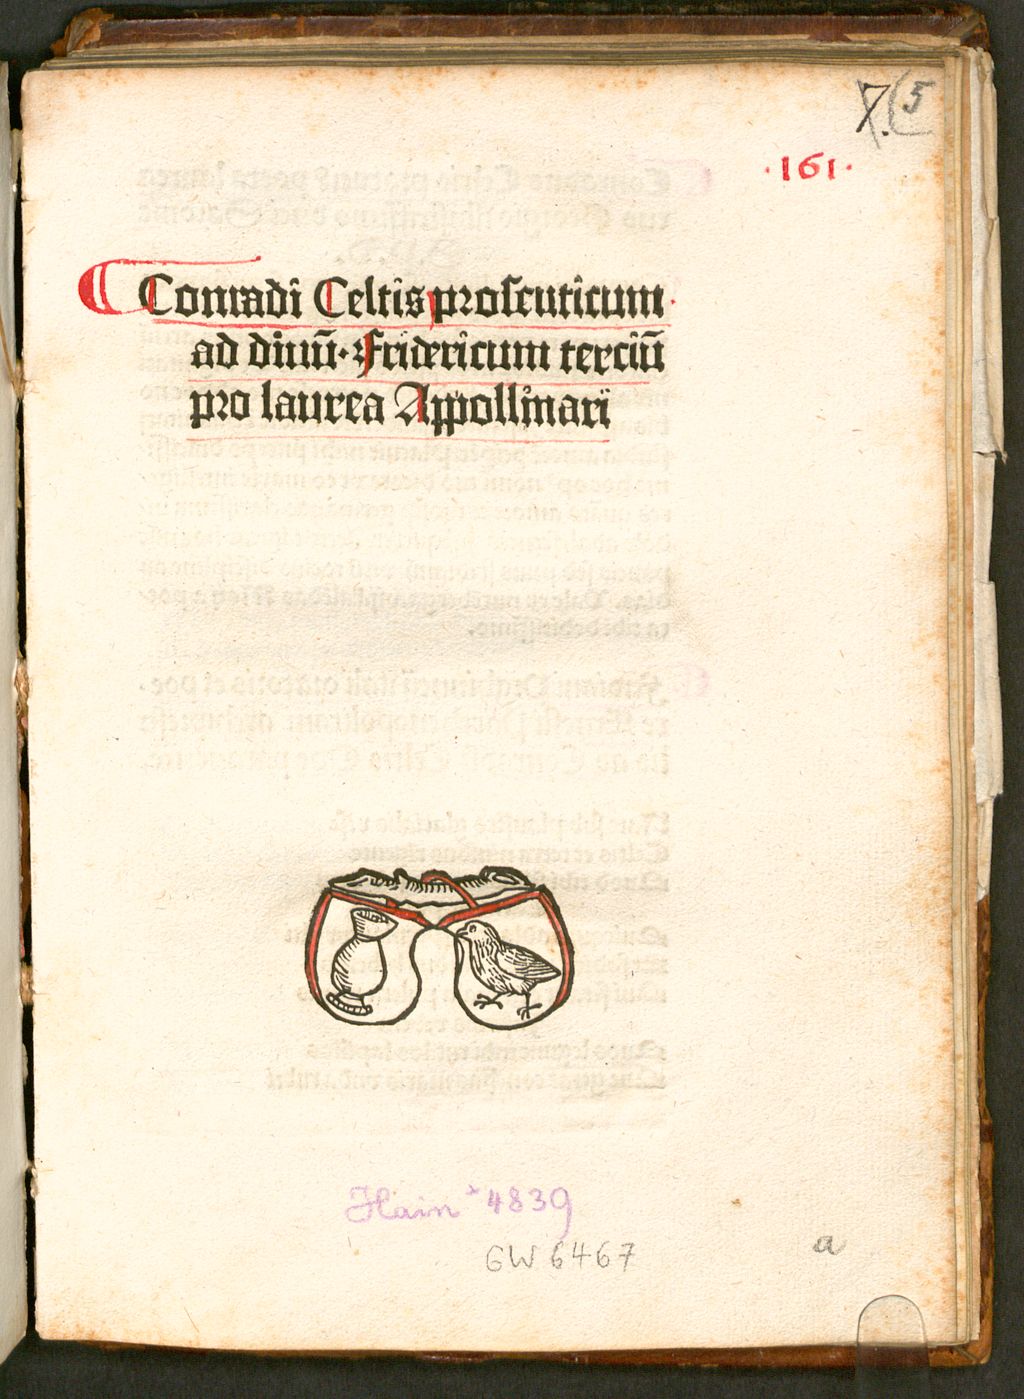 7. (5
·161·
Conradi Celtis proseuticum
ad diuū· Fridericum terciū
pro laurea Appollinari
Hain *4839
GW 6467
a